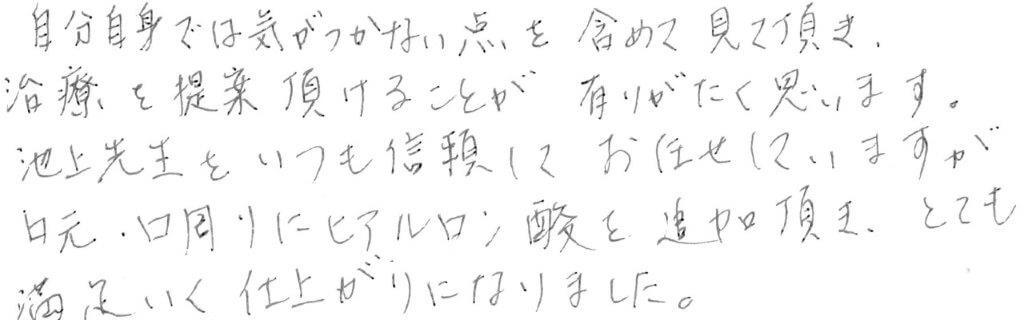 自分自身では気がつかない点を含めて見て頂き、
治療を提案頂けることが有りがたく思います。
池上先生をいつも信頼してお任せしていますが
口元・口周りにヒアルロン酸を追加頂き、とても
満足いく仕上がりになりました。